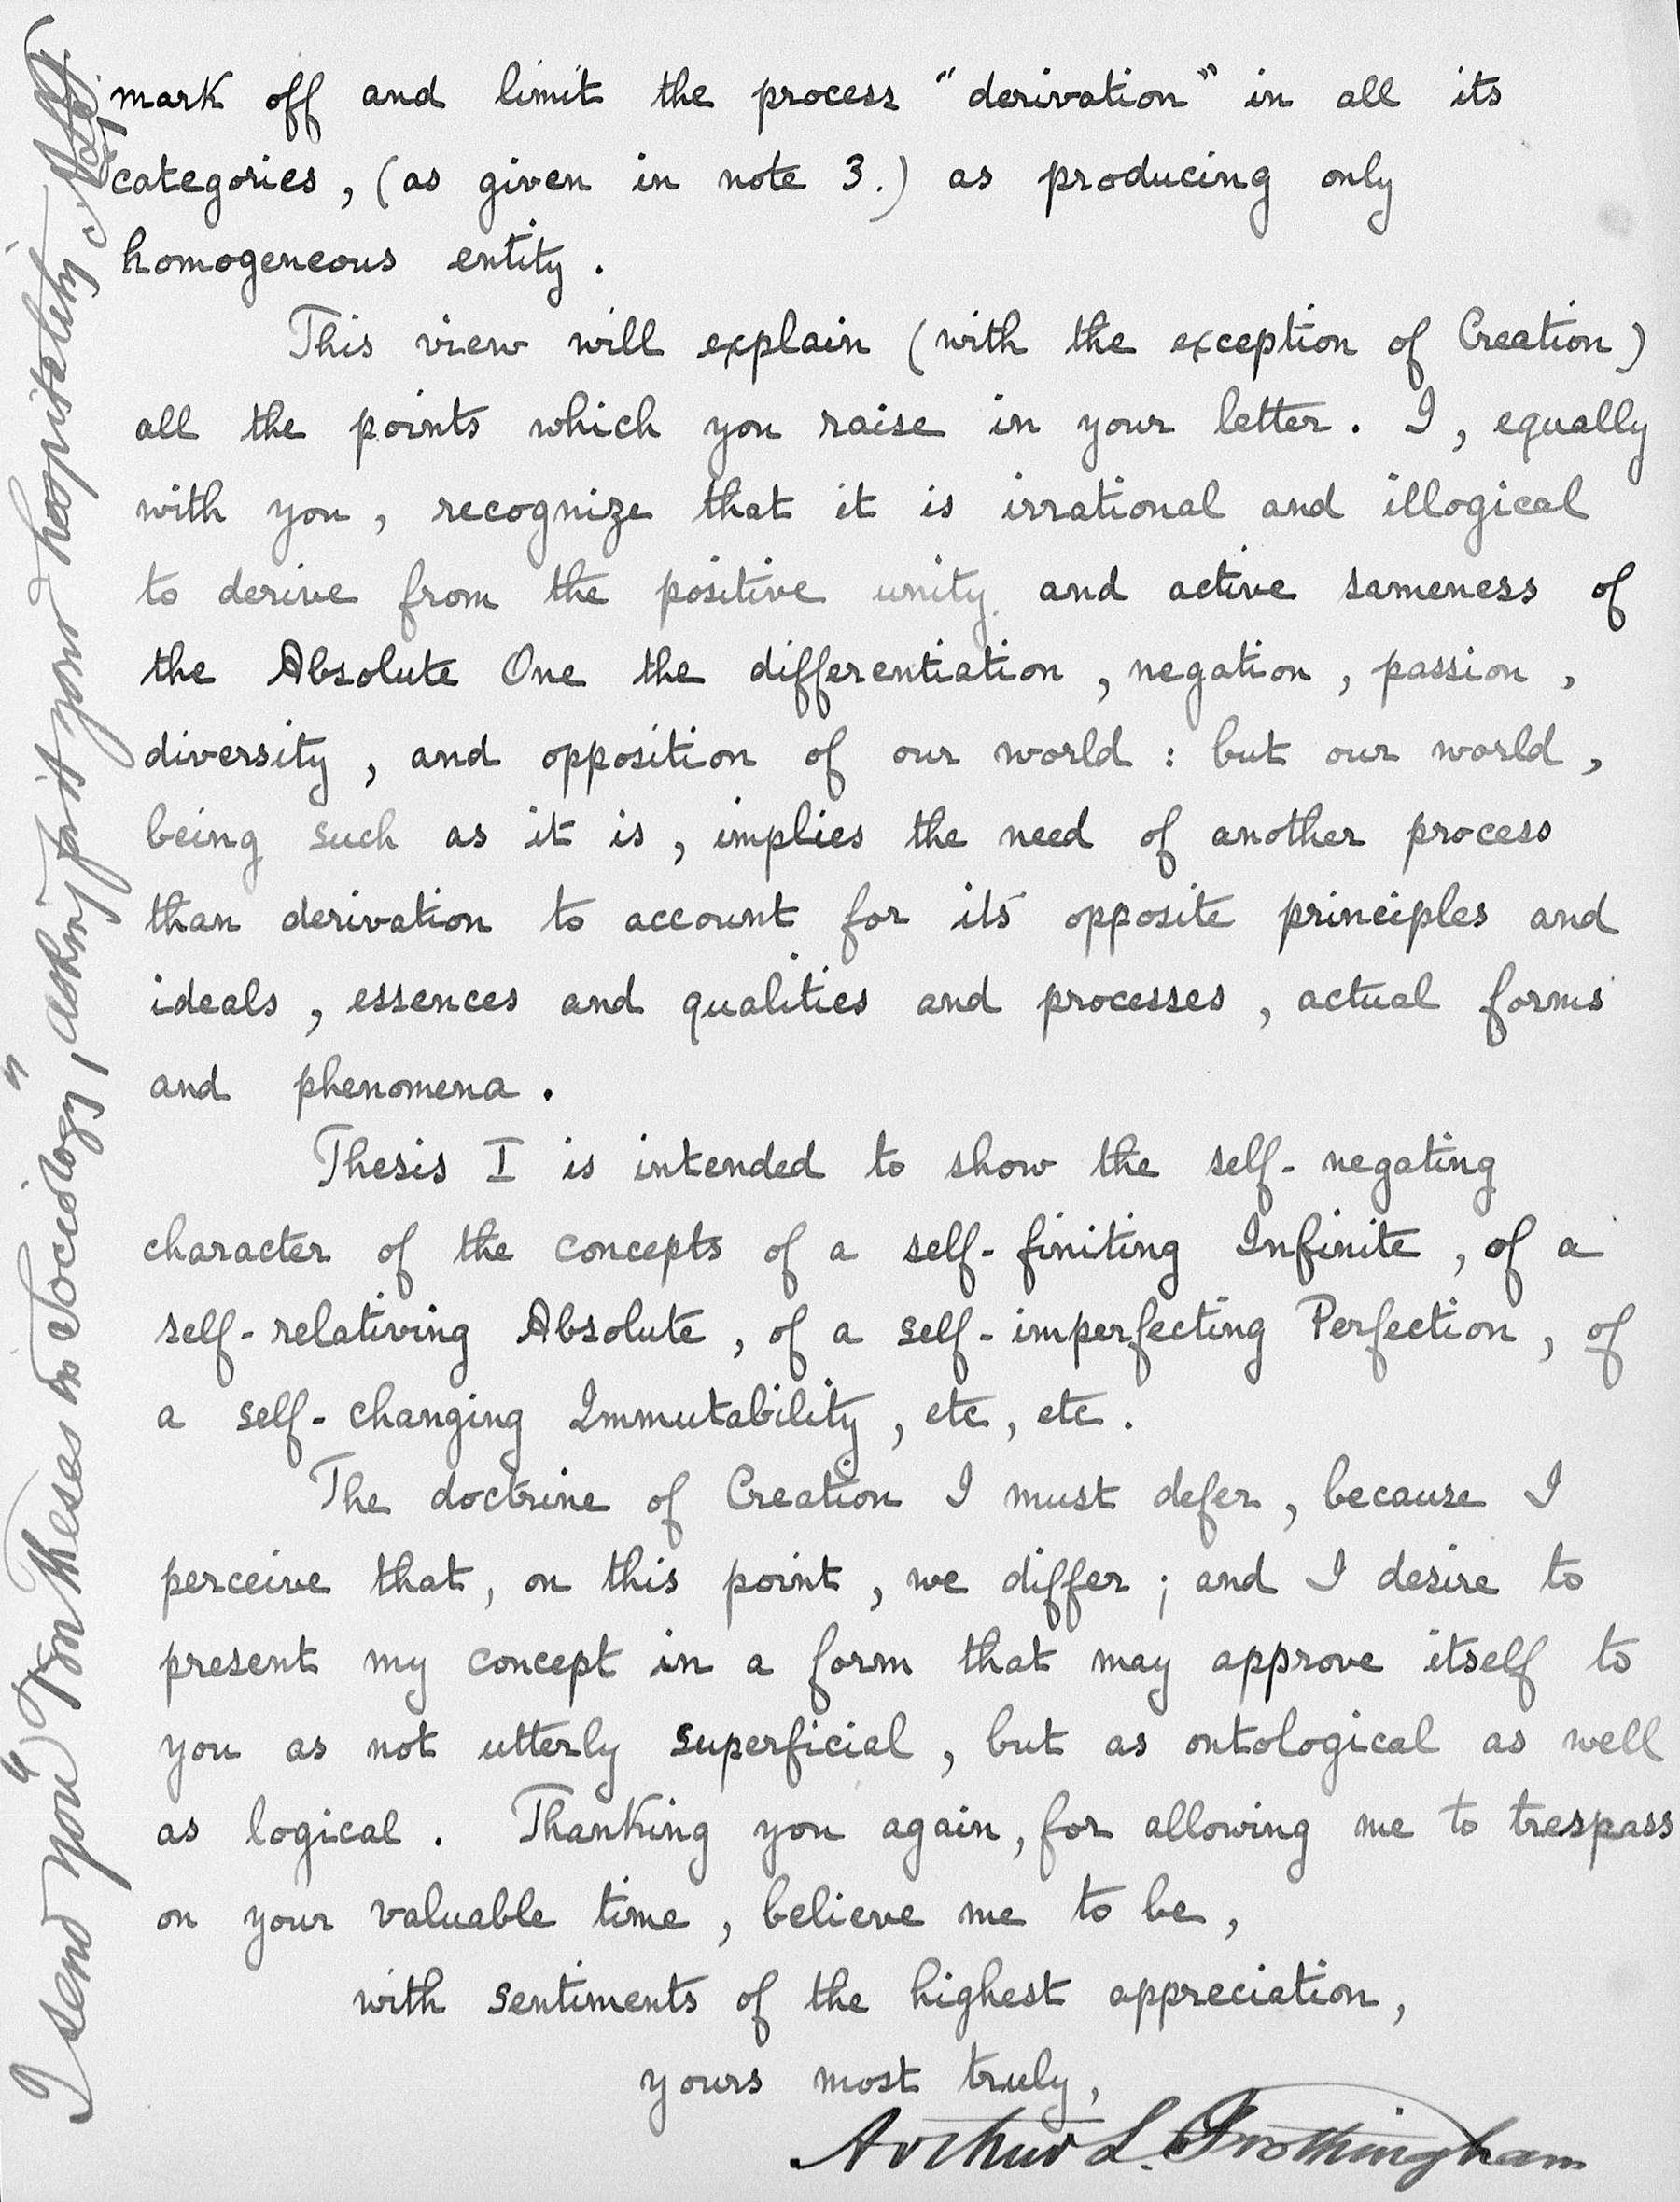 mark off and limit the process "derivation" in all its
categories, (as given in note 3.) as producing only
homogeneous entity.
This view will explain (with the exception of Creation)
all the points which you raise in your letter. I, equally
with you, recognize that it is irrational and illogical
to derive from the positive unity and active sameness of
the Absolute One the differentiation, negation, passion,
diversity, and opposition of our world: but our world,
being such as it is, implies the need of another process
than derivation to account for its opposite principles and
ideals, essences and qualities and processes, actual forms
and phenomena.
Thesis I is intended to show the self-negating
character of the concepts of a self-finiting Infinite, of a
self-relativing Absolute, of a self-imperfecting Perfection, of
a self-changing Immutability, etc, etc.
The doctrine of Creation I must defer, because I
perceive that, on this point, we differ; and I desire to
present my concept in a form that may approve itself to
you as not utterly superficial, but as ontological as well
as logical. Thanking you again, for allowing me to trespass
on your valuable time, believe me to be,
with sentiments of the highest appreciation,
yours most truly,
Arthur L. Frothingham
I send you "Ten Theses in Sociology," asking for it your hospitality. A.L.F.